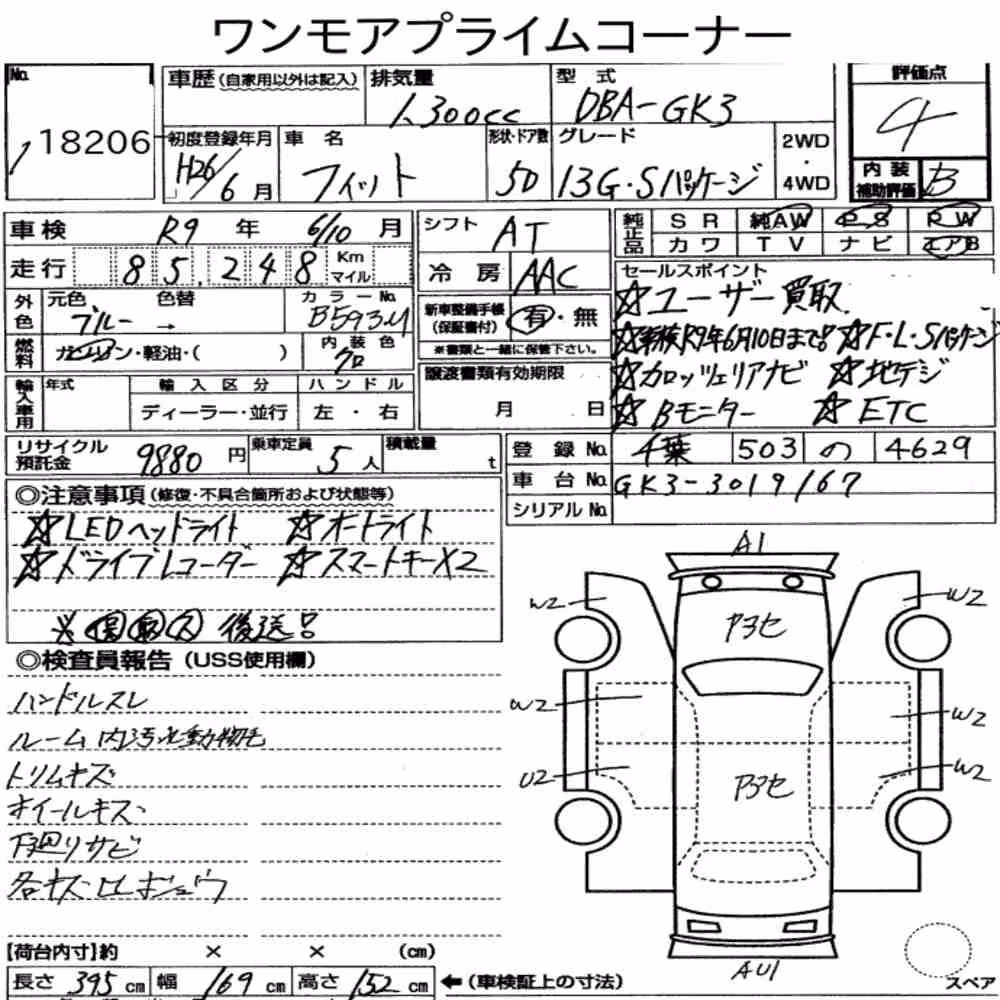 ワンモアプライムコーナー
No. 18206
車歴 (自家用以外は記入)
排気量 1300cc
型式 DBA-GK3
評価点 4
初度登録年月 H26/6月
車名 フィット
形状・ドア数 5D
グレード 13G・Sパッケージ
2WD・4WD
内装補助評価 B
車検 R9年 6/10月
シフト AT
純正品 SR 純AW P.S P.W
カワ TV ナビ エアB
走行 85,248 Km マイル
冷房 AAC
セールスポイント
☆ユーザー買取
☆車検R9年6月10日まで! ☆F・L・Sパッケージ
☆カロッツェリアナビ ☆地デジ
☆Bモニター ☆ETC
外色 元色 ブルー → 色替
カラーNo. B593M
新車整備手帳(保証書付) 有・無
※書類と一緒に保管下さい。
燃料 ガソリン・軽油・( )
内装色 クロ
譲渡書類有効期限
月 日
輸入車用 年式 輸入区分 ハンドル
ディーラー・並行 左・右
リサイクル預託金 9880円
乗車定員 5人
積載量 t
登録No. 千葉 503 の 4629
車台No. GK3-3019167
シリアルNo.
◎注意事項(修復・不具合箇所および状態等)
☆LEDヘッドライト ☆オートライト
☆ドライブレコーダー ☆スマートキーX2
※ 取 後送!
◎検査員報告(USS使用欄)
ハンドルスレ
ルーム内汚れ動物毛
トリムキズ
ホイールキズ
下廻りサビ
A1
W2
W2
P3セ
W2
W2
U2
P3セ
W2
AU1
スペア
【荷台内寸】約 × × (cm)
長さ 395cm 幅 169cm 高さ 152cm ←(車検証上の寸法)